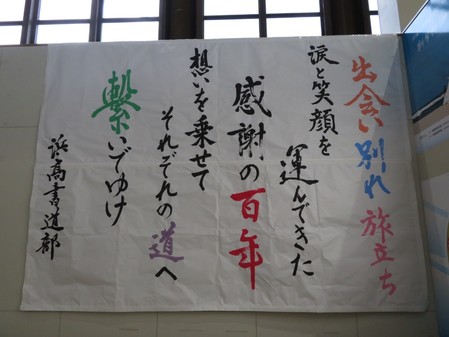 出会い別れ旅立ち
涙と笑顔を
運んできた
感謝の百年
想いを乗せて
それぞれの道へ
繋いでゆけ
高書道部